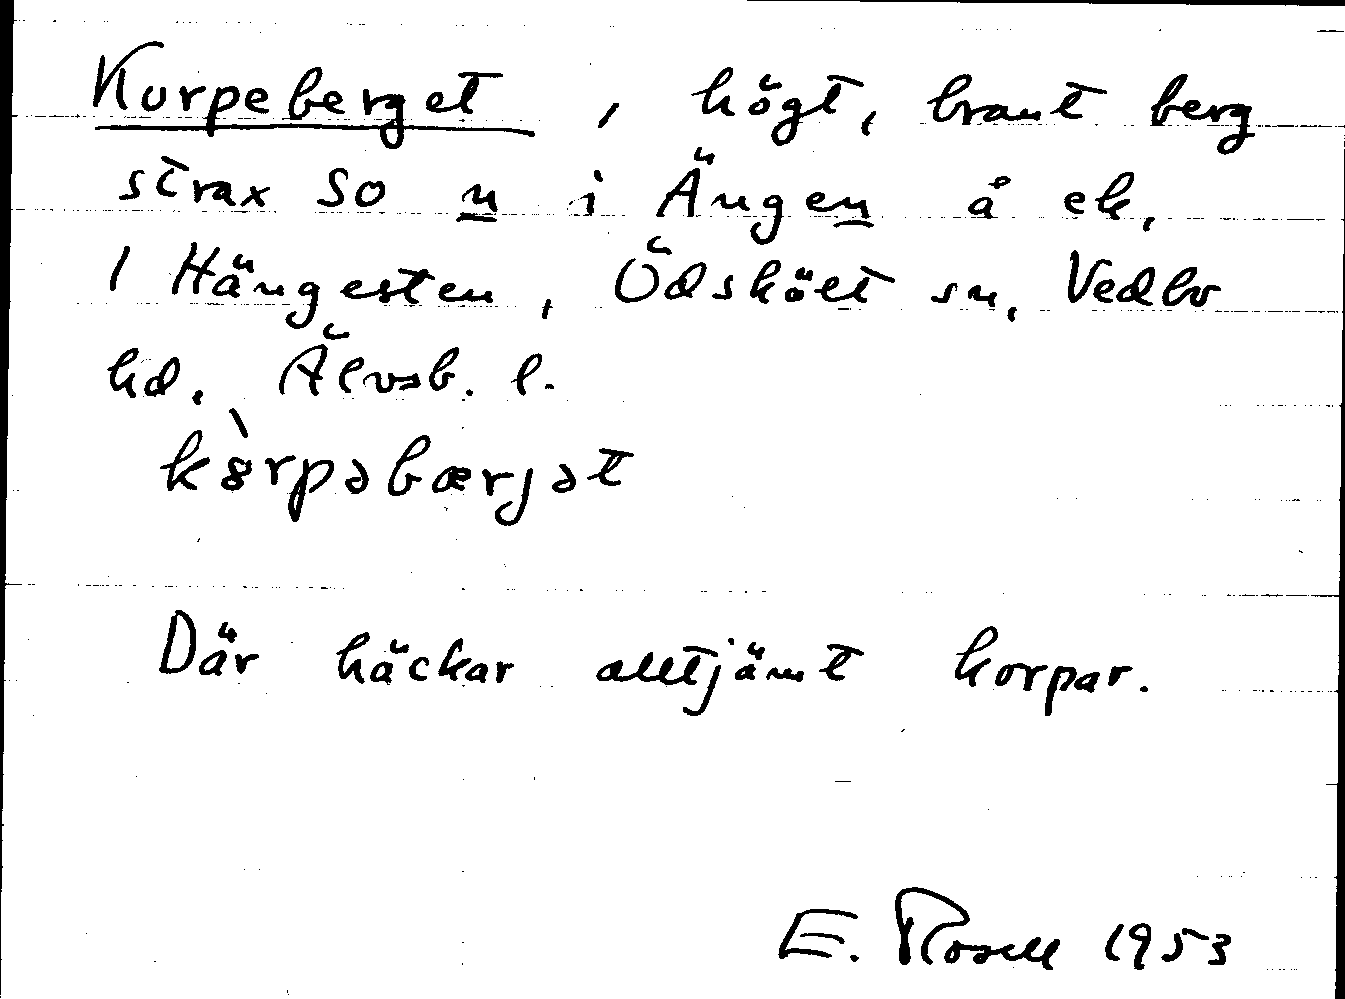 Korpeberget, högt, brant berg
strax SO n i Ängen å ek.
1 Hängesten, Ödskölt sn, Vedbo
hd. Älvsb. l.
kòrpəbærjət
Där häckar alltjämt korpar.
E. Rosell 1953